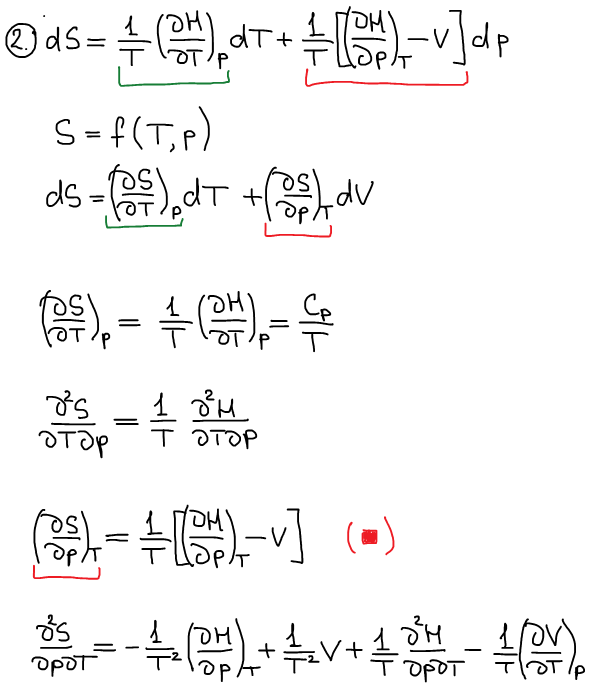 2. dS = 1/T (∂H/∂T)_p dT + 1/T [(∂H/∂p)_T − V] dp
S = f(T, p)
dS = (∂S/∂T)_p dT + (∂S/∂p)_T dV
(∂S/∂T)_p = 1/T (∂H/∂T)_p = C_p/T
∂²S/∂T∂p = 1/T ∂²H/∂T∂p
(∂S/∂p)_T = 1/T [(∂H/∂p)_T − V] (■)
∂²S/∂p∂T = −1/T² (∂H/∂p)_T + 1/T² V + 1/T ∂²H/∂p∂T − 1/T (∂V/∂T)_p